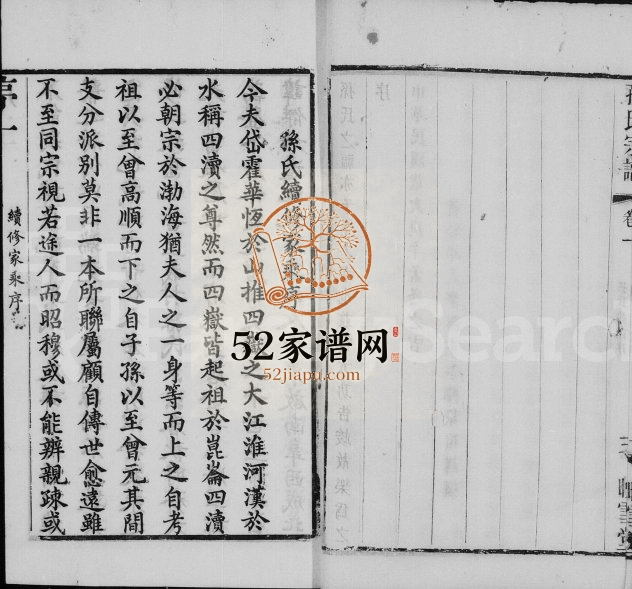 孫氏續修家乘序
今夫岱霍華恆於山推四嶽之大江淮河漢於
水稱四瀆之尊然而四嶽皆起祖於崑崙四瀆
必朝宗於渤海猶夫人之一身等而上之自考
祖以至曾高順而下之自子孫以至曾元其間
支分派别莫非一本所聯屬顧自傳世愈遠雖
不至同宗視若途人而昭穆或不能辨親疎或
續修家乘序
序一
孫氏宗譜
卷一
52家谱网
52jiapu.com